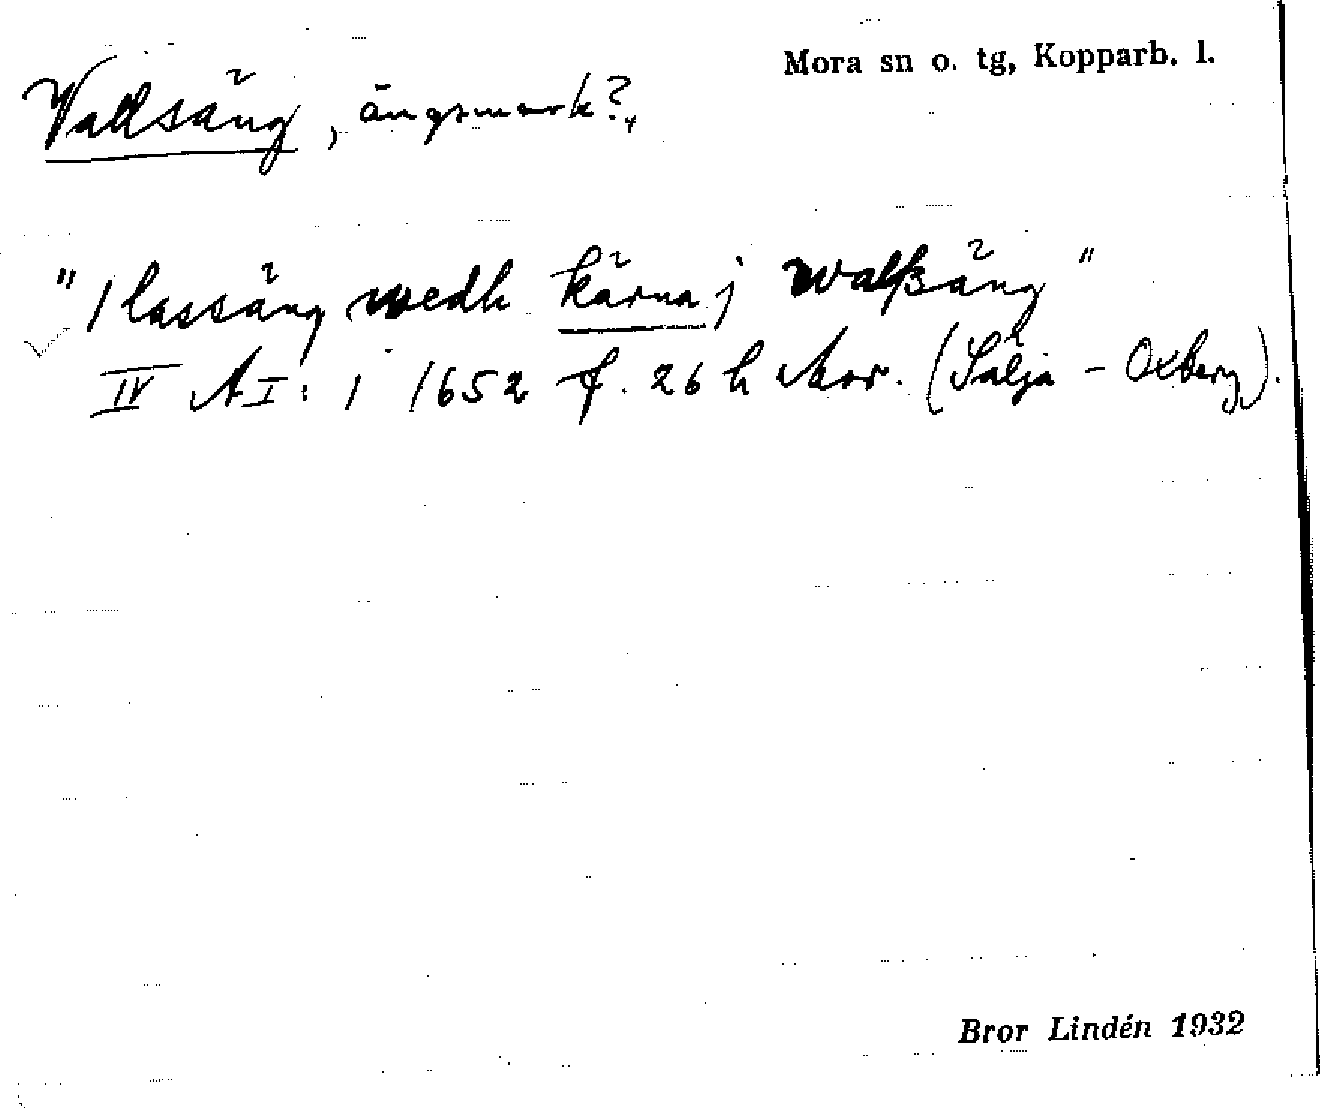 Mora sn o. tg, Kopparb. l.
Vallsäng, ängsmark?
"1 lassäng wedh kärna j walßäng"
IV AI: 1 1652 f. 26 h Mor. (Sälja - Oxberg).
Bror Lindén 1932